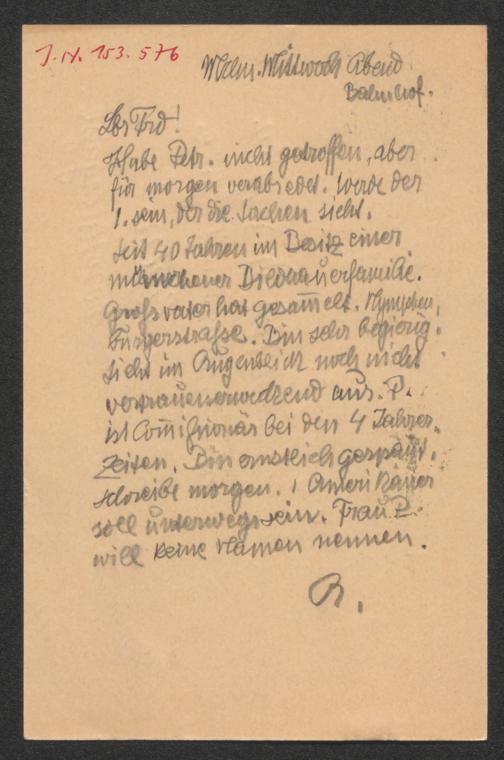 J.N. 153.576
Mchn. Mittwoch Abend
Bahnhof.
Lbr Frd!
Habe Petr. nicht getroffen, aber
für morgen verabredet. Werde der
1. sein, der die Sachen sieht.
Seit 40 Jahren im Besitz einer
münchener Bildhauerfamilie.
Grofsvater hat gesam̅elt.
Bin sehr begierig.
Sieht im Augenblick noch nicht
vertrauenerweckend aus. P.
ist Com̅issionär bei den 4 Jahres-
zeiten. Bin ernstlich gespannt.
Schreibe morgen. 1 Amerikaner
soll unterwegs sein. Frau P.
will keine Namen nennen.
R.